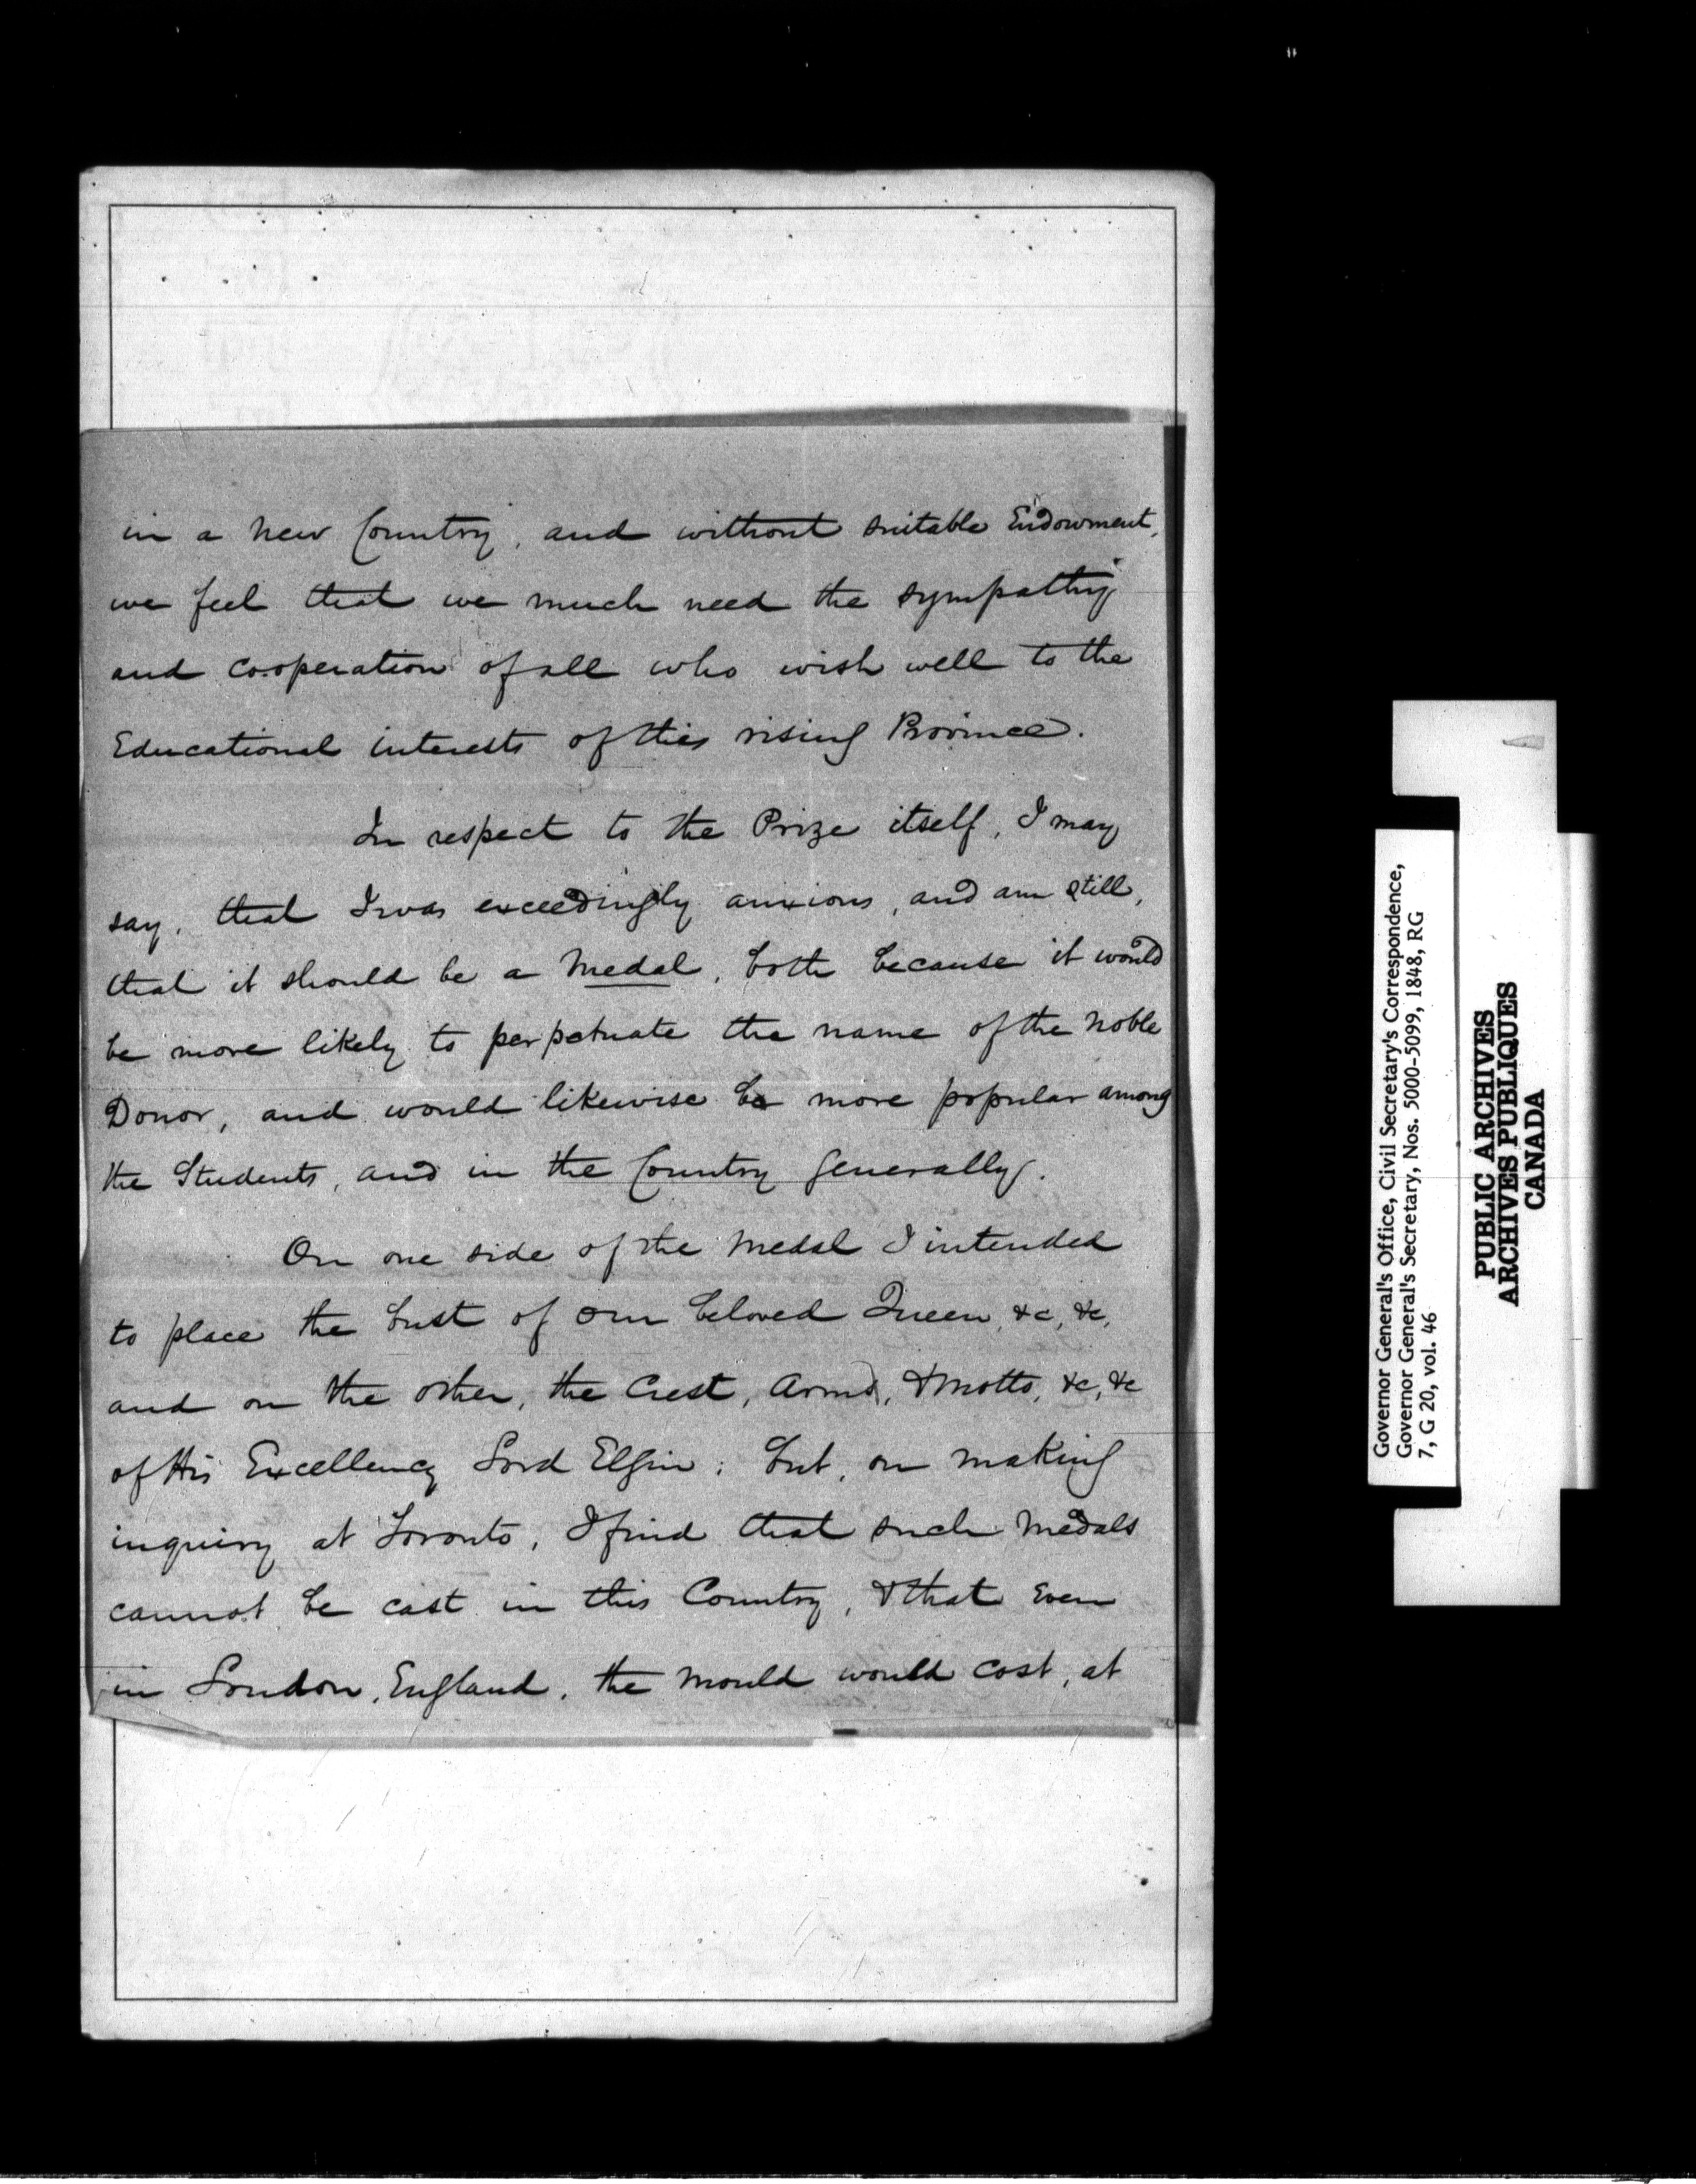 in a new Country, and without suitable Endowment,
we feel that we much need the sympathy
and co.operation of all who wish well to the
Educational interests of this rising Province.
In respect to the Prize itself, I may
say, that I was exceedingly anxious, and am still,
that it should be a Medal, both because it would
be more likely to perpetuate the name of the Noble
Donor, and would likewise be more popular among
the Students, and in the Country generally.
On one side of the Medal I intended
to place the bust of our beloved Queen, &c, &c,
and on the other, the Crest, Arms, & Motto, &c, &c
of His Excellency Lord Elgin; but, on making
inquiry at Toronto, I find that such Medals
cannot be cast in this Country, & that even
in London, England, the mould would cost, at
Governor General's Office, Civil Secretary's Correspondence,
Governor General's Secretary, Nos. 5000-5099, 1848, RG
7, G 20, vol. 46
PUBLIC ARCHIVES
ARCHIVES PUBLIQUES
CANADA